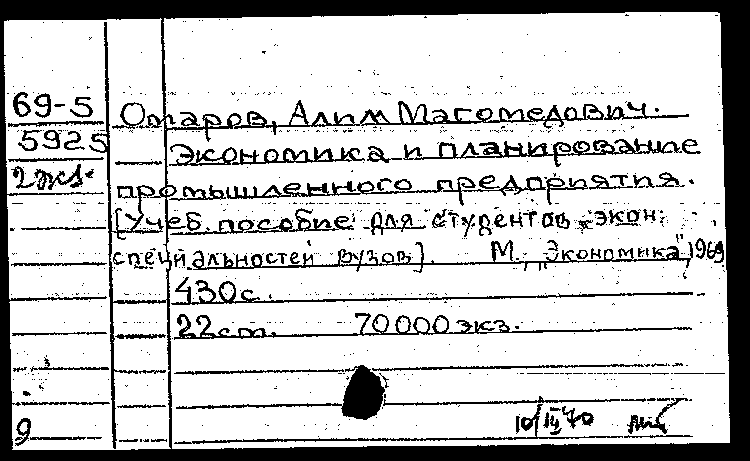 69-5
5925
2 экз.
Отаров, Алим Магомедович.
Экономика и планирование
промышленного предприятия.
[Учеб. пособие для студентов экон.
специальностей вузов]. М., „Экономика", 1969
430 с.
22 cm. 70000 экз.
9
10/III 70